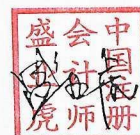 中国注册
会计师
盛虎